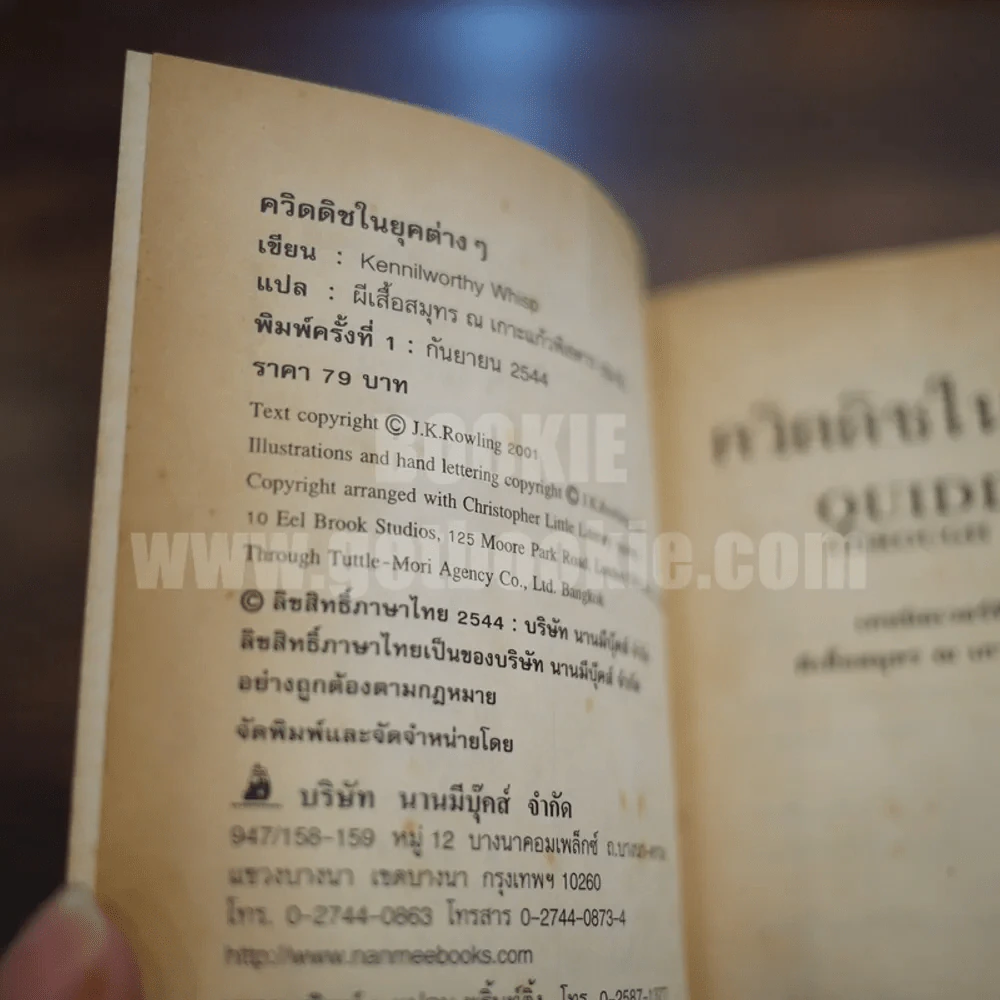 ควิดดิชในยุคต่าง ๆ
เขียน : Kennilworthy Whisp
แปล : ผีเสื้อสมุทร ณ เกาะแก้วพิสดาร
พิมพ์ครั้งที่ 1 : กันยายน 2544
ราคา 79 บาท
Text copyright © J.K.Rowling 2001
Illustrations and hand lettering copyright © J.K.Rowling
Copyright arranged with Christopher Little
10 Eel Brook Studios, 125 Moore Park Road,
Through Tuttle-Mori Agency Co., Ltd. Bangkok
© ลิขสิทธิ์ภาษาไทย 2544 : บริษัท นานมีบุ๊คส์ จำกัด
ลิขสิทธิ์ภาษาไทยเป็นของบริษัท นานมีบุ๊คส์ จำกัด
อย่างถูกต้องตามกฎหมาย
จัดพิมพ์และจัดจำหน่ายโดย
บริษัท นานมีบุ๊คส์ จำกัด
947/158-159 หมู่ 12 บางนาคอมเพล็กซ์ ถ.บางนา-ตราด
แขวงบางนา เขตบางนา กรุงเทพฯ 10260
โทร. 0-2744-0863 โทรสาร 0-2744-0873-4
http://www.nanmeebooks.com
โทร. 0-2587-
ควิดดิชใน
QUIDD
THROUGH
BOOKIE
www.gotbookie.com